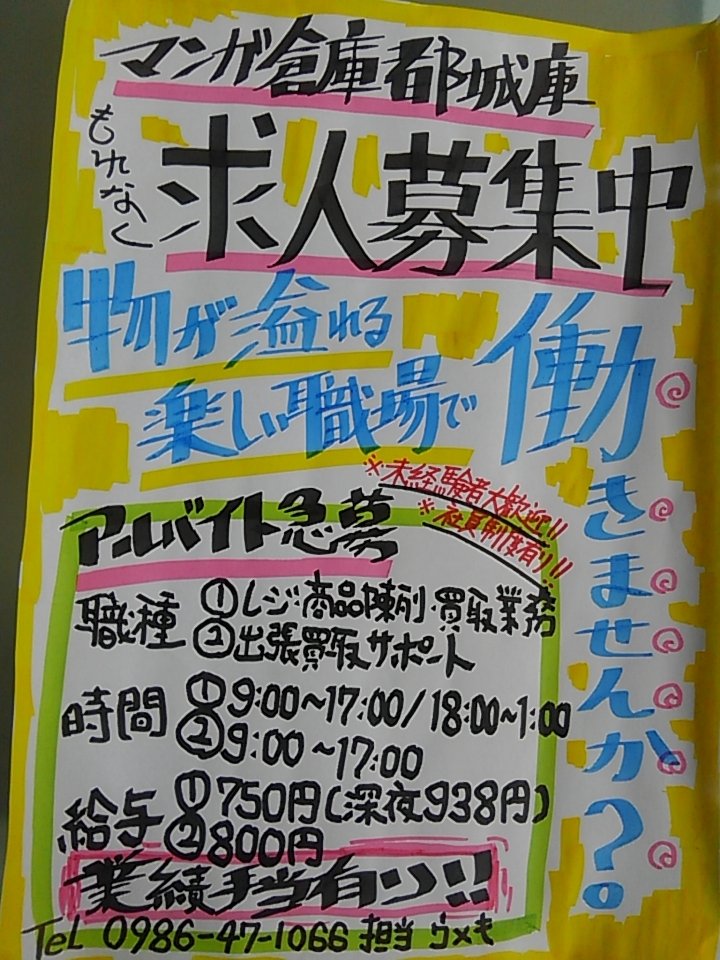 マンガ倉庫都城庫
もれなく
求人募集中
物が溢れる
楽しい職場で
働きませんか?。
※未経験者大歓迎!!
※社員制度有り!!
アルバイト急募
職種 ①レジ・商品陳列・買取業務
②出張買取サポート
時間 ①9:00~17:00/18:00~1:00
②9:00~17:00
給与 ①750円(深夜938円)
②800円
業績手当有り!!
TeL 0986-47-1066 担当 うメモ